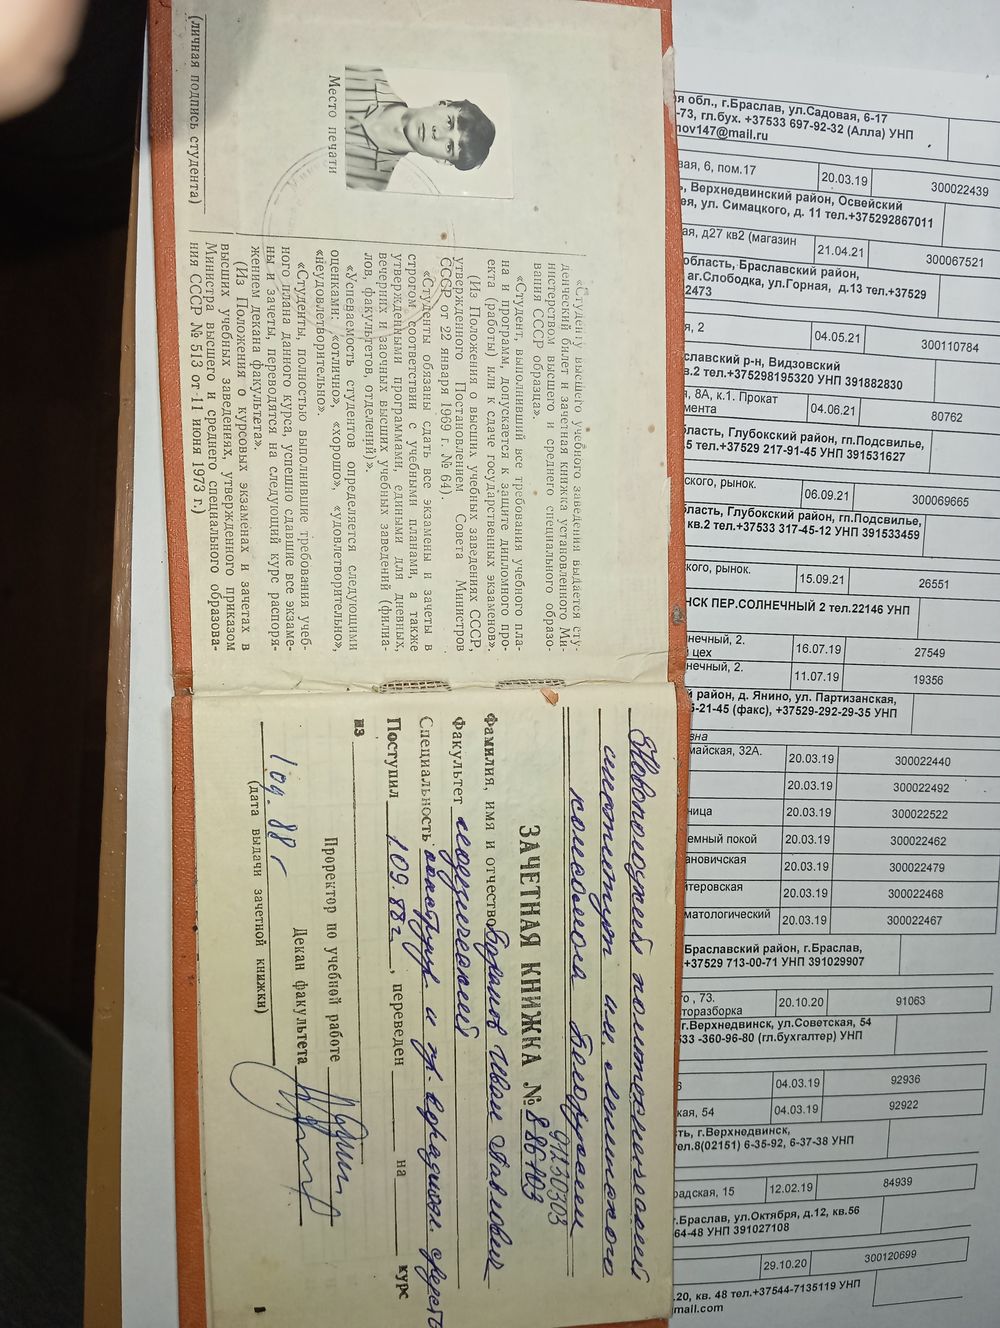 «Студенту высшего учебного заведения выдается сту-
денческий билет и зачетная книжка установленного Ми-
нистерством высшего и среднего специального образо-
вания СССР образца».
«Студент, выполнивший все требования учебного пла-
на и программ, допускается к защите дипломного про-
екта (работы) или к сдаче государственных экзаменов».
(Из Положения о высших учебных заведениях СССР,
утвержденного Постановлением Совета Министров
СССР от 22 января 1969 г. № 64).
«Студенты обязаны сдать все экзамены и зачеты в
строгом соответствии с учебными планами, а также
утвержденными программами, едиными для дневных,
вечерних и заочных высших учебных заведений (филиа-
лов, факультетов, отделений)».
«Успеваемость студентов определяется следующими
оценками: «отлично», «хорошо», «удовлетворительно»,
«неудовлетворительно».
«Студенты, полностью выполнившие требования учеб-
ного плана данного курса, успешно сдавшие все экзаме-
ны и зачеты, переводятся на следующий курс распоря-
жением декана факультета».
(Из Положения о курсовых экзаменах и зачетах в
высших учебных заведениях, утвержденного приказом
Министра высшего и среднего специального образова-
ния СССР № 513 от 11 июня 1973 г.)
Место печати
(личная подпись студента)
Новополоцкий политехнический
институт им. Ленинского
комсомола Белоруссии
91230303
ЗАЧЕТНАЯ КНИЖКА № 886103
Фамилия, имя и отчество Иван Павлович
Факультет
Специальность и
Поступил 1.09.88 г., переведен на курс
из
Проректор по учебной работе
Декан факультета
1 09. 88 г
(дата выдачи зачетной книжки)
1
обл., г.Браслав, ул.Садовая, 6-17
-73, гл.бух. +37533 697-92-32 (Алла) УНП
nov147@mail.ru
6, пом.17 20.03.19 300022439
Верхнедвинский район, Освейский
ул. Симацкого, д. 11 тел.+375292867011
д27 кв2 (магазин 21.04.21 300067521
Браславский район,
аг.Слободка, ул.Горная, д.13 тел.+37529
2473
2 04.05.21 300110784
р-н, Видзовский
в.2 тел.+375298195320 УНП 391882830
8А, к.1. Прокат
04.06.21 80762
Глубокский район, гп.Подсвилье,
5 тел.+37529 217-91-45 УНП 391531627
рынок. 06.09.21 300069665
Глубокский район, гп.Подсвилье,
кв.2 тел.+37533 317-45-12 УНП 391533459
рынок. 15.09.21 26551
НСК ПЕР.СОЛНЕЧНЫЙ 2 тел.22146 УНП
2.
цех 16.07.19 27549
2. 11.07.19 19356
район, д. Янино, ул. Партизанская,
5-21-45 (факс), +37529-292-29-35 УНП
32А. 20.03.19 300022440
20.03.19 300022492
ница 20.03.19 300022522
емный покой 20.03.19 300022462
ановичская 20.03.19 300022479
теровская 20.03.19 300022468
матологический 20.03.19 300022467
Браславский район, г.Браслав,
+37529 713-00-71 УНП 391029907
73.
торазборка 20.10.20 91063
г.Верхнедвинск, ул.Советская, 54
533 -360-96-80 (гл.бухгалтер) УНП
04.03.19 92936
кая, 54 04.03.19 92922
г.Верхнедвинск,
тел.8(02151) 6-35-92, 6-37-38 УНП
радская, 15 12.02.19 84939
г.Браслав, ул.Октября, д.12, кв.56
64-48 УНП 391027108
29.10.20 300120699
.20, кв. 48 тел.+37544-7135119 УНП
mail.com